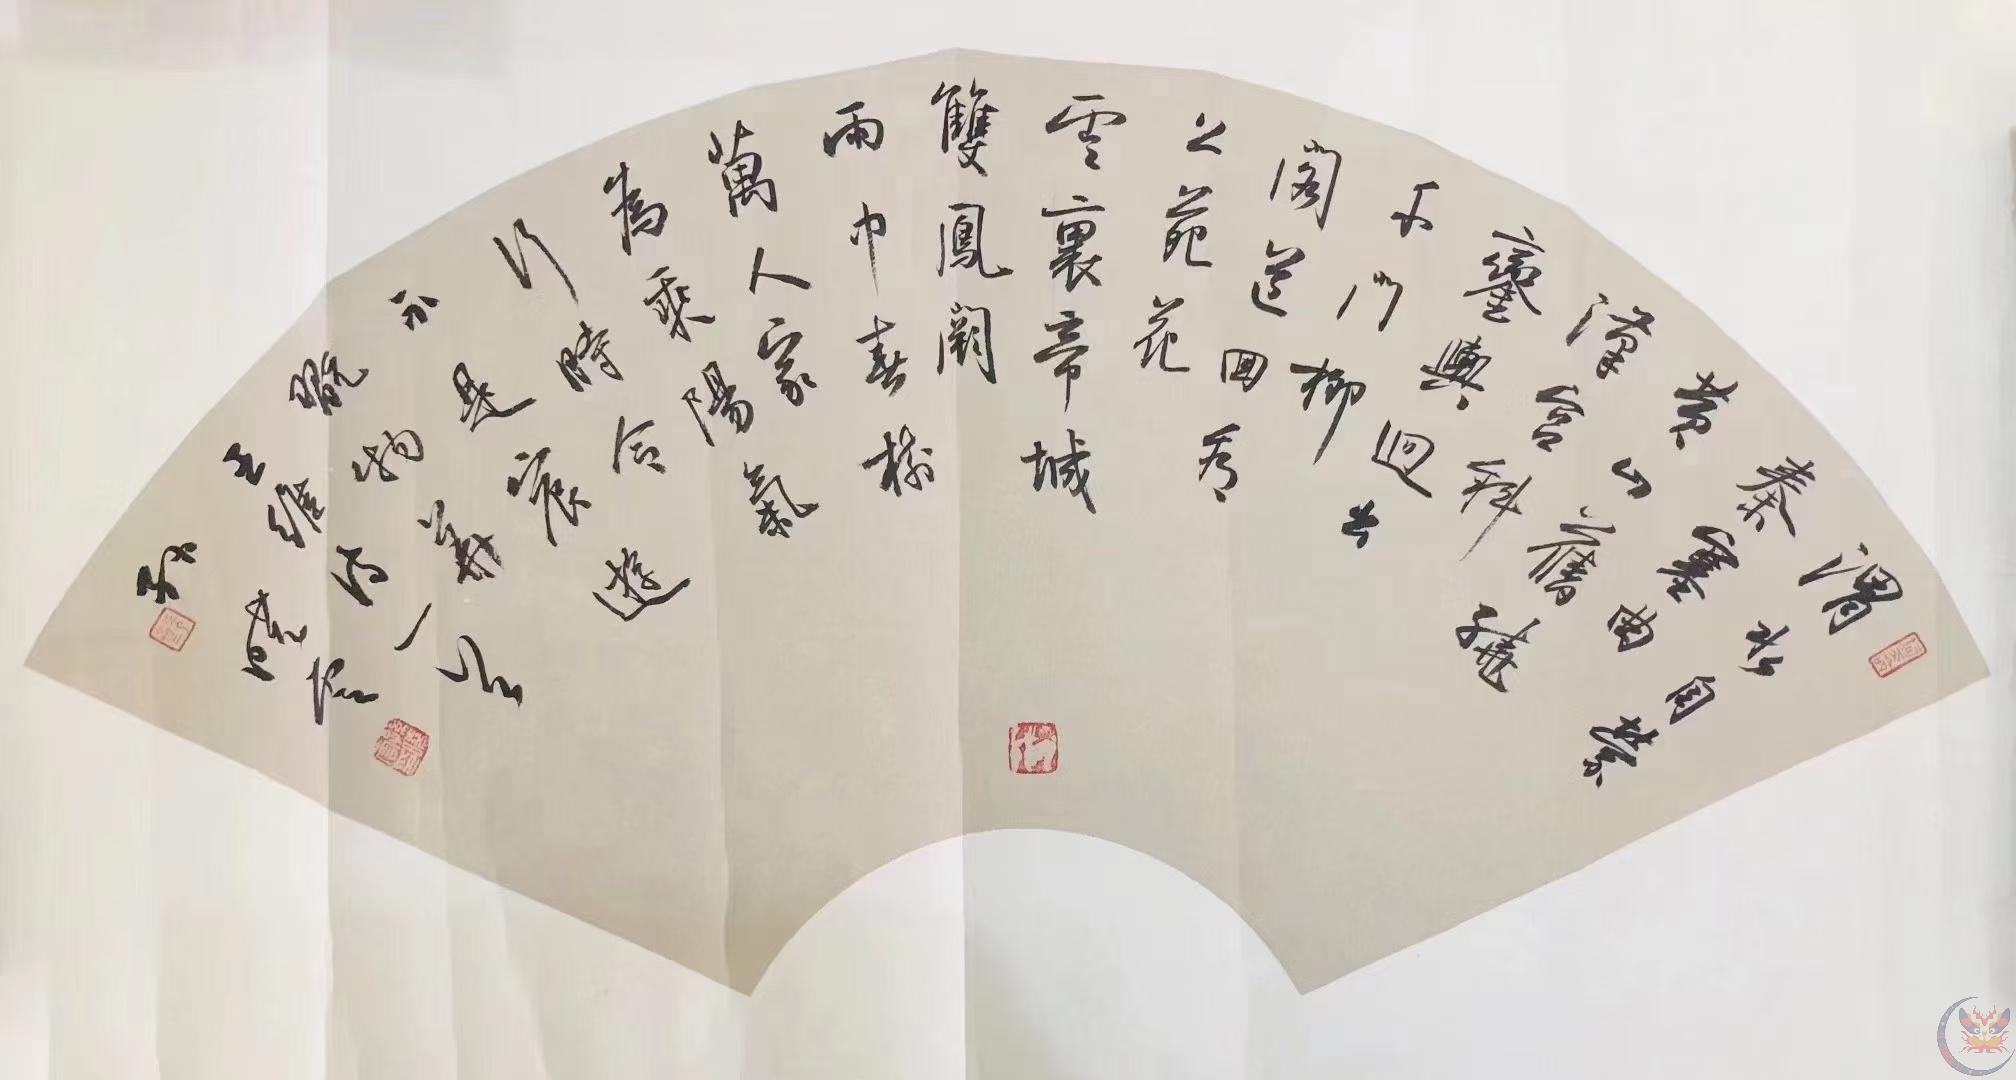 渭水自縈
秦塞曲
黃山舊繞
漢宮斜
鑾輿迥出
千門柳
閣道回看
上苑花
雲裏帝城
雙鳳闕
雨中春樹
萬人家
為乘陽氣
行時令
不是宸遊
翫物華
王維詩一首